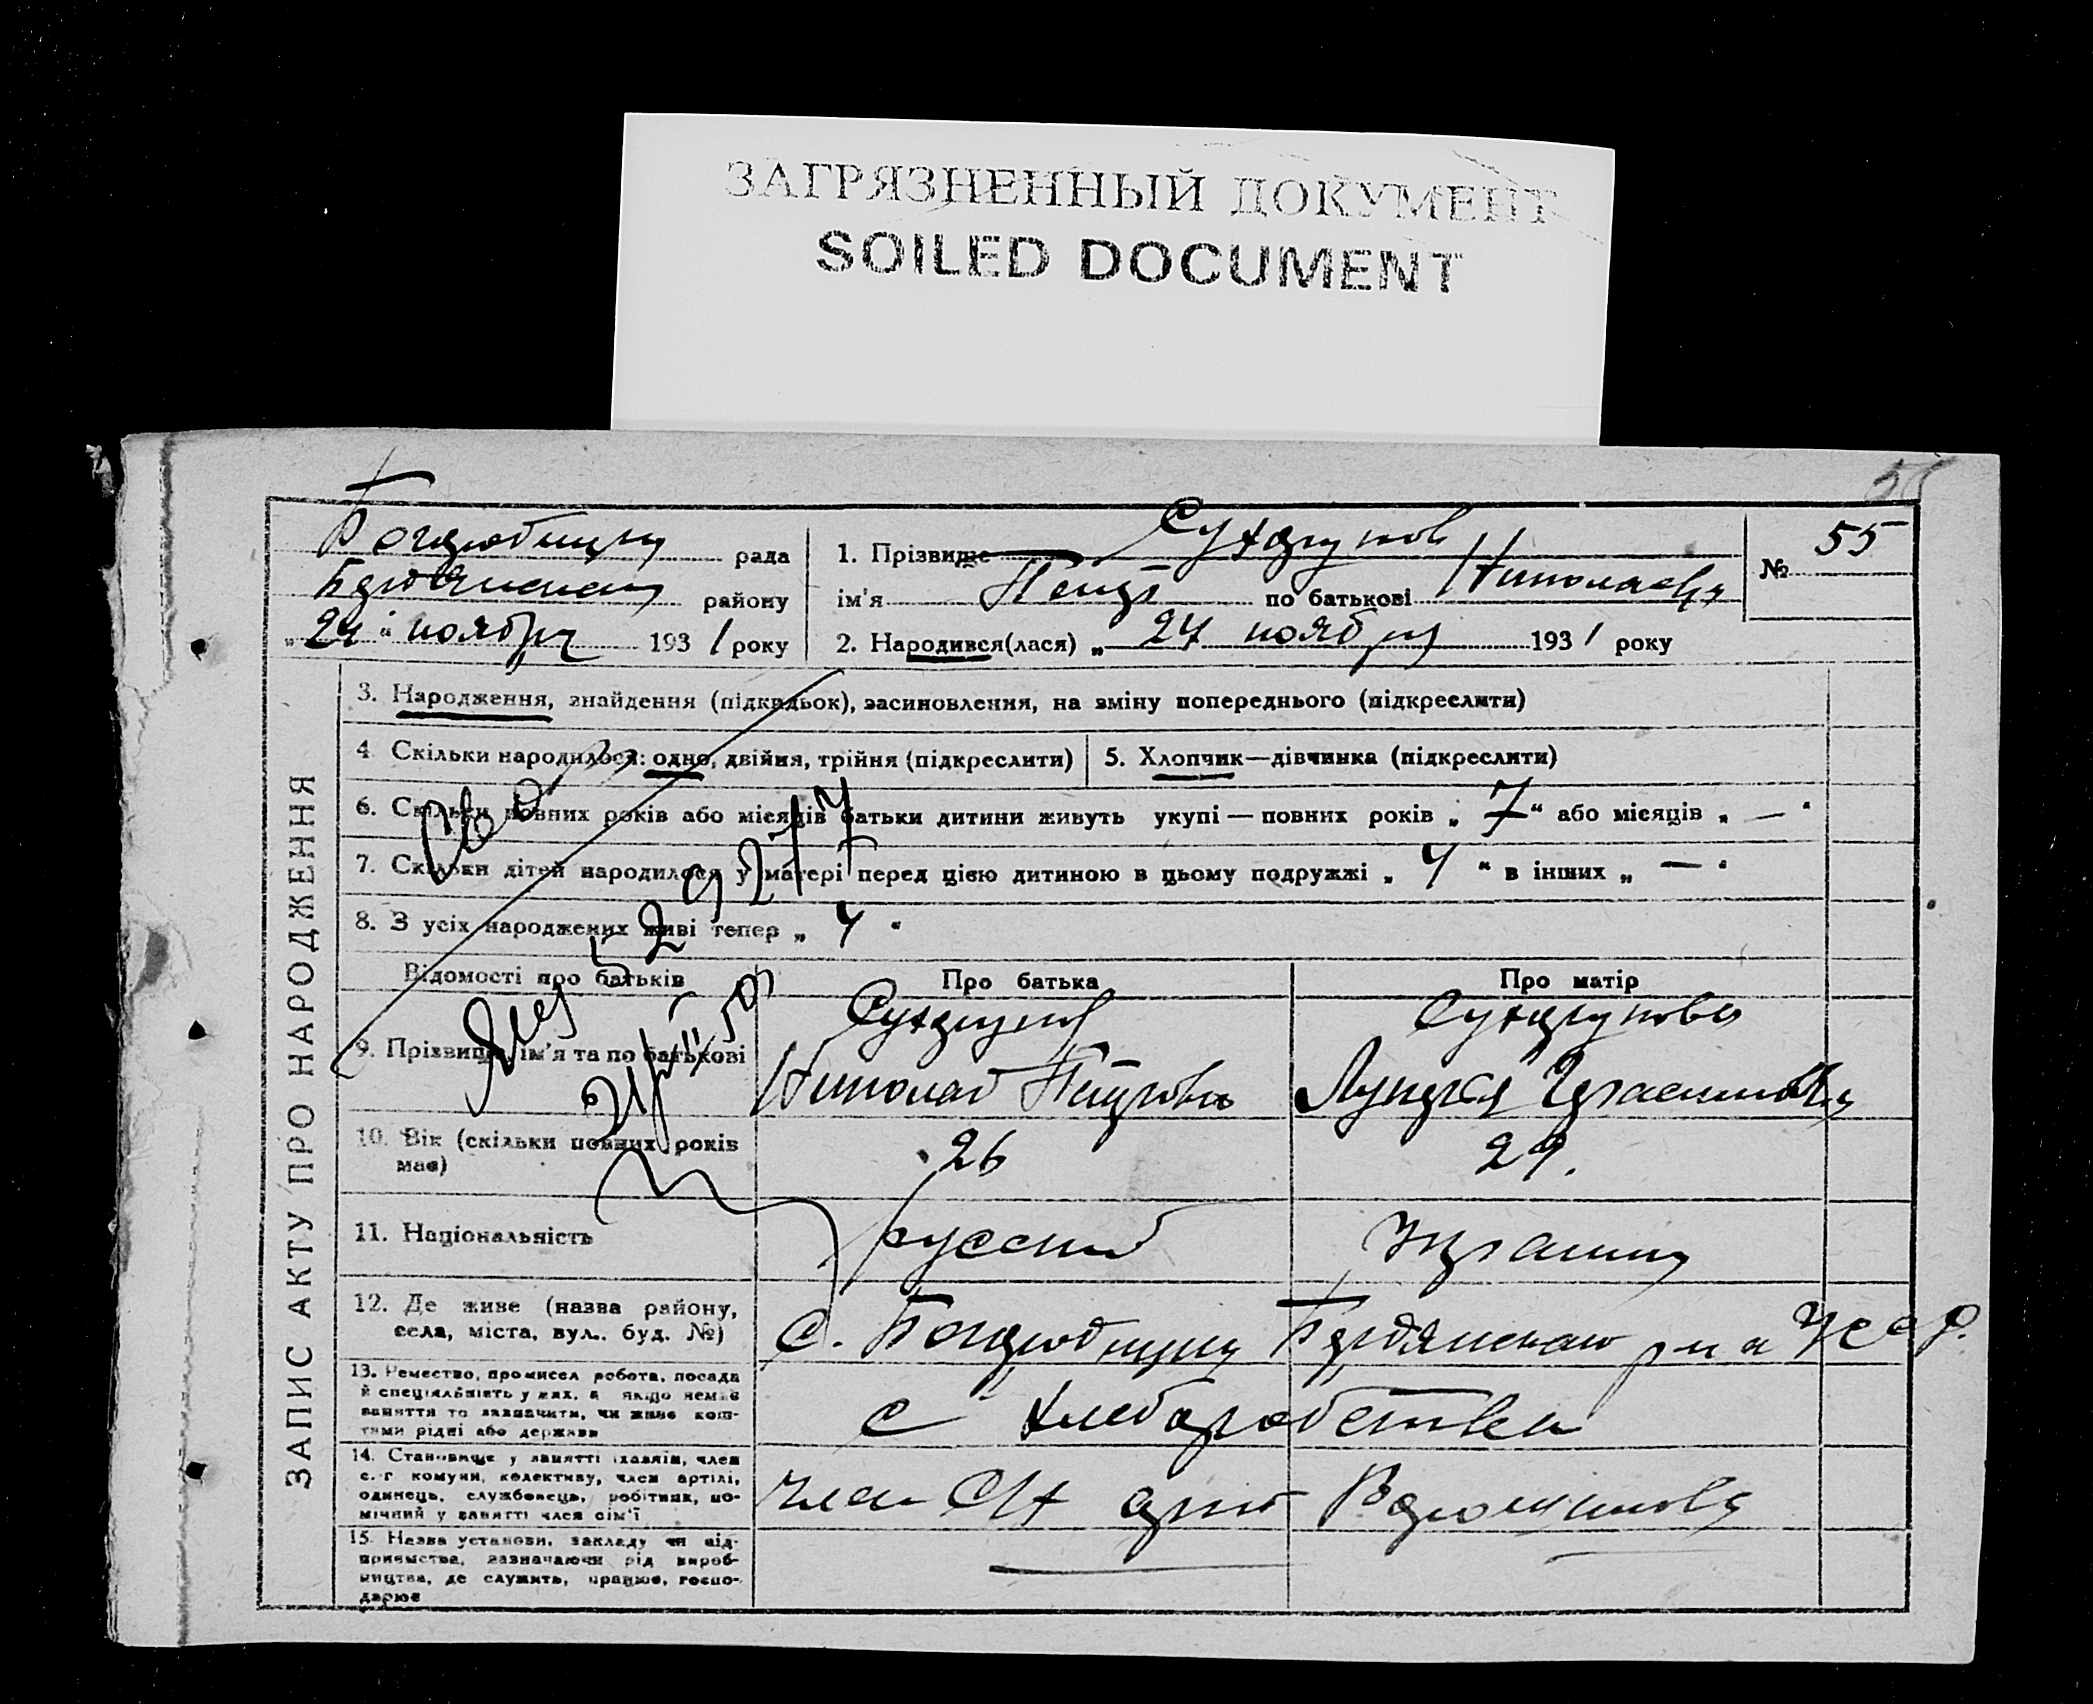 ЗАГРЯЗНЕННЫЙ ДОКУМЕНТ
SOILED DOCUMENT
рада
району
„24“ ноября 1931 року
1. Прізвище
ім'я по батькові
2. Народився(лася) „ 24 ноября 1931 року
№ 55
ЗАПИС АКТУ ПРО НАРОДЖЕННЯ
3. Народження, знайдення (підкидьок), засиновлення, на зміну попереднього (підкреслити)
4. Скільки народилося: одно, двійня, трійня (підкреслити)
5. Хлопчик—дівчинка (підкреслити)
6. Скільки повних років або місяців батьки дитини живуть укупі — повних років „ 7 “ або місяців „ — “
7. Скільки дітей народилося у матері перед цією дитиною в цьому подружжі „ 4 “ в інших „ — “
8. З усіх народжених живі тепер „ 4 “
Відомості про батьків
Про батька
Про матір
9. Прізвище, ім'я та по батькові
Николай Петрович
10. Вік (скільки повних років
має)
26
29.
11. Національність
русский
12. Де живе (назва району,
села, міста, вул., буд. №)
с. Бердянского р н а УССР.
13. Ремество, промисел робота, посада
й спеціяльність у них, а якщо немає
заняття то зазначити, чи живе кош-
тами рідні або держави
с хлеборобства
14. Становище у занятті (хазяїн, член
с.-г комуни, колективу, член артілі,
одинець, службовець, робітник, по-
мічний у занятті член сім'ї
член СХ арт Ворошилова
15. Назва установи, закладу чи під-
приємства, зазначаючи рід вироб-
ництва, де служить, працює, госпо-
дарює